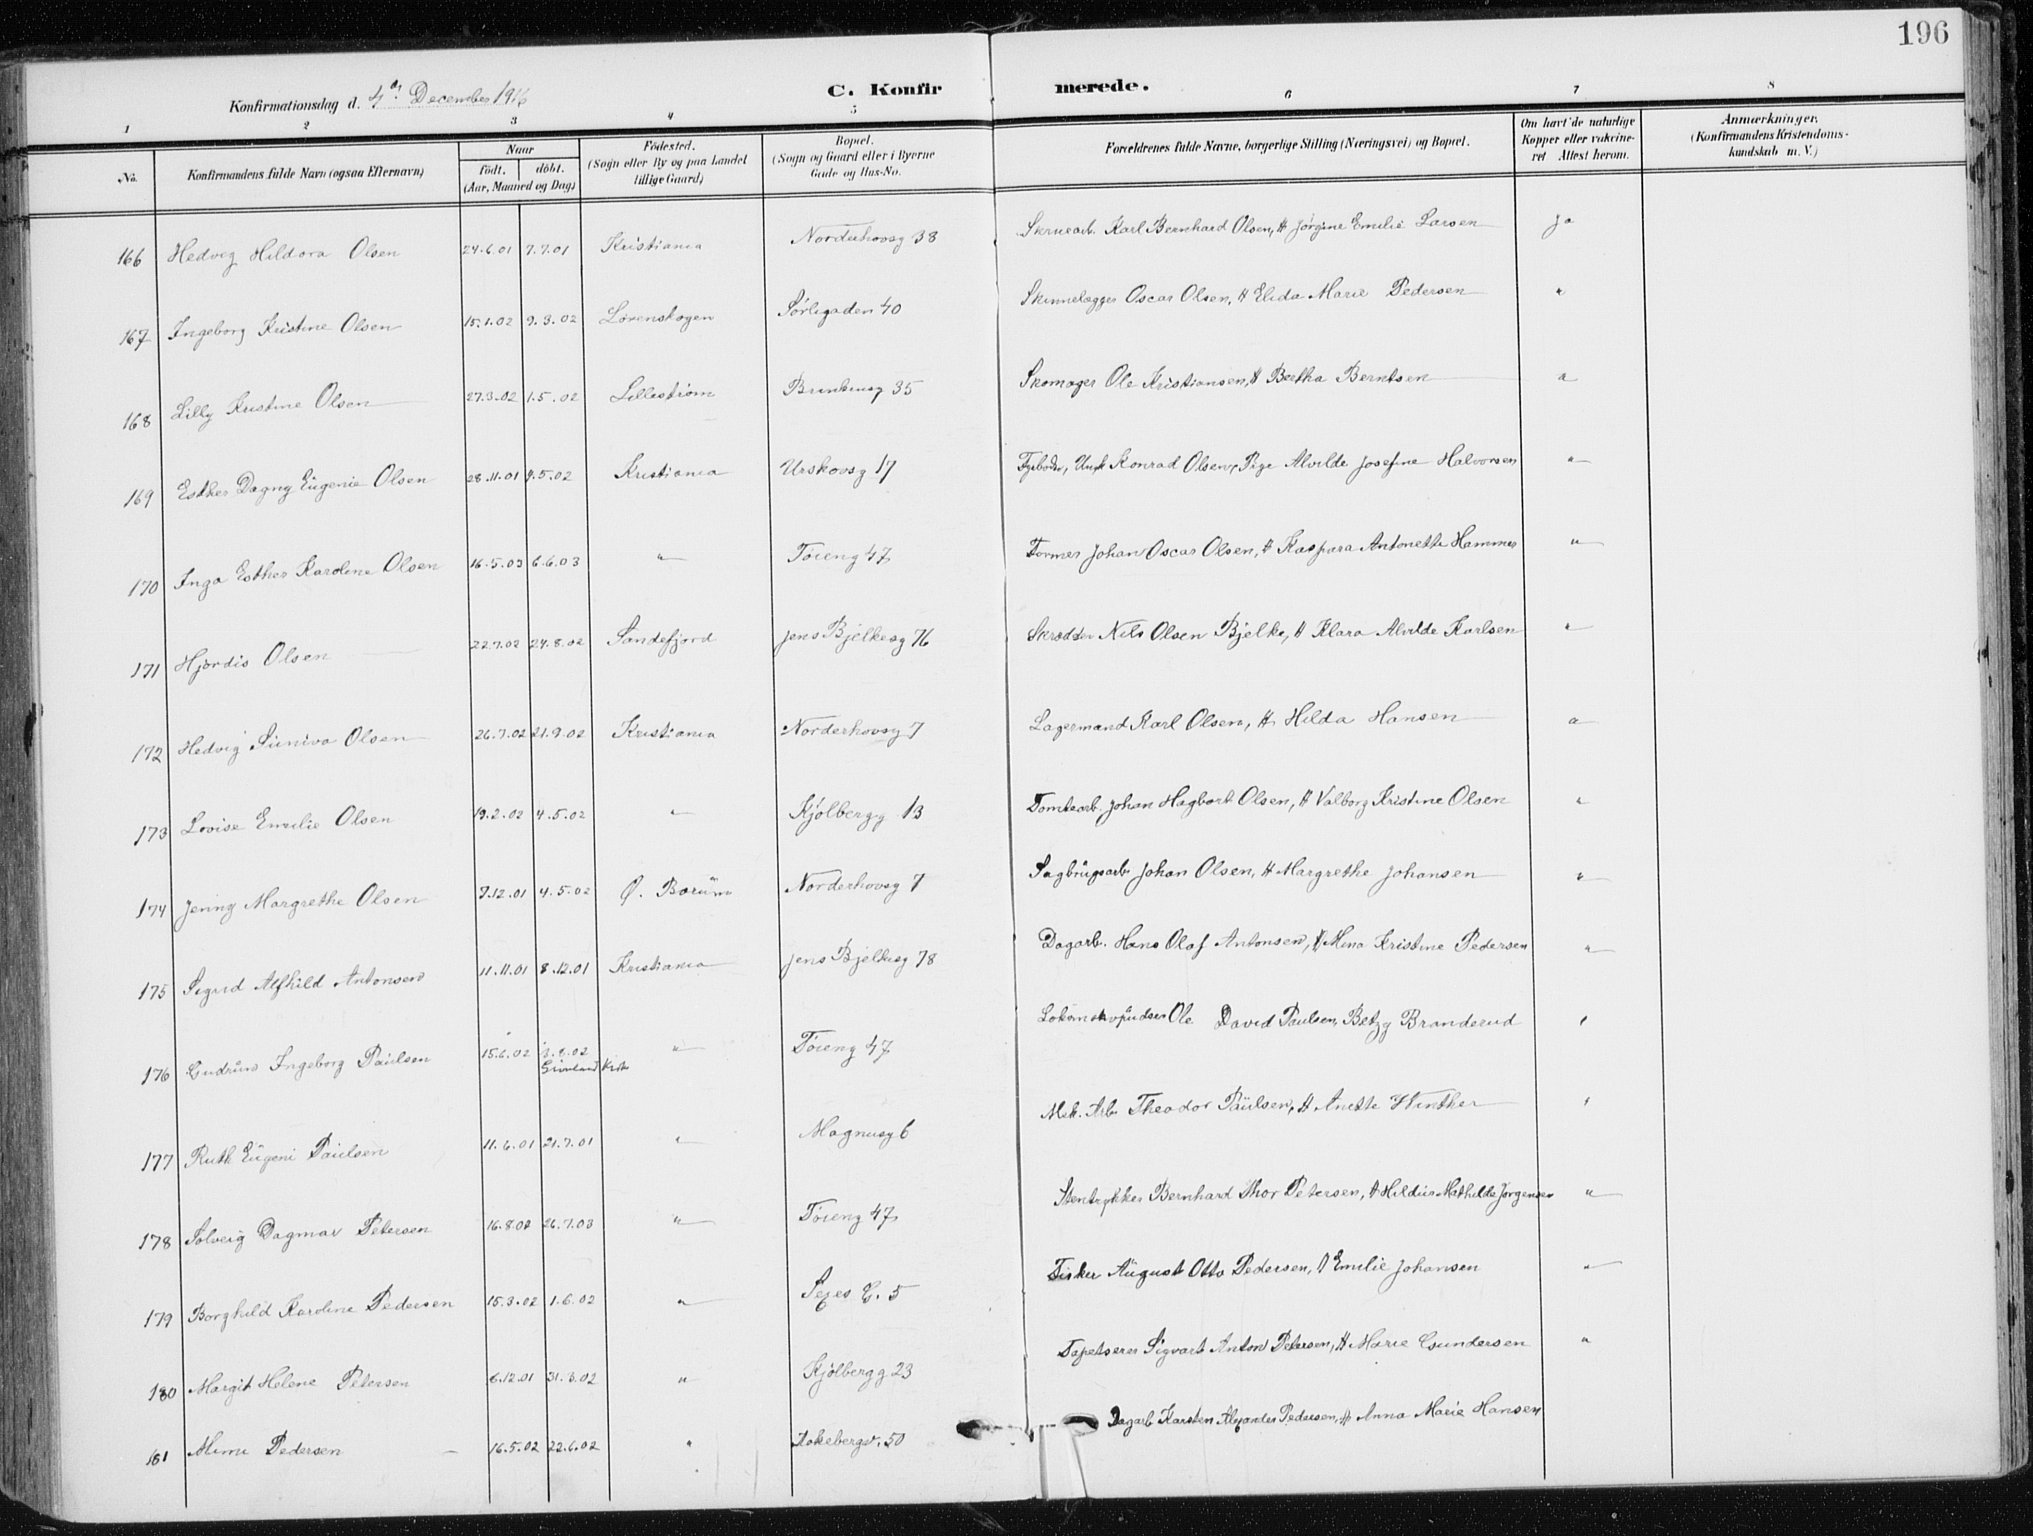 196
Konfirmationsdag d. 4de December 1916
C. Konfirmerede.
1 2 3 4 5 6 7 8
No. Konfirmandens fulde Navn (ogsaa Efternavn) Naar født. døbt. (Aar, Maaned og Dag) Fødested. (Sogn eller By og paa Landet tillige Gaard) Bopæl. (Sogn og Gaard eller i Byerne Gade og Hus-No. Forældrenes fulde Navne, borgerlige Stilling (Næringsvei) og Bopæl. Om havt de naturlige Kopper eller vaccineret Attest herom. Anmærkninger. (Konfirmandens Kristendomskundskab m. V.)
166 Hedvig Hildora Olsen 24.6.01 7.7.01 Kristiania Norderhovsg 38 Skruearb. Karl Bernhard Olsen, H Jørgine Emilie Larsen Ja
167 Ingeborg Kristine Olsen 15.1.02 9.3.02 Lørenskogen Sørligaden 40 Skinnelægger Oscar Olsen, H Elida Marie Pedersen "
168 Lilly Kristine Olsen 27.3.02 1.5.02 Lillestrøm 35 Skomager Ole Kristiansen, H Bertha Berntsen "
169 Esther Dagny Eugenie Olsen 28.11.01 4.5.02 Kristiania Urskovsg 17 Fyrbøder, Ungk Konrad Olsen, Pige Alvilde Josefine Halvorsen "
170 Inga Esther Karoline Olsen 16.5.03 6.6.03 " Tøieng 47 Former Johan Oscar Olsen, H Kaspara Antonette Hammer "
171 Hjørdis Olsen 22.7.02 24.8.02 Sandefjord Jens Bjelkesg 76 Skrædder Nils Olsen Bjelke, H Klara Alvilde Karlsen "
172 Hedvig Suniva Olsen 26.7.02 21.9.02 Kristiania Norderhovsg 7 Lagermand Karl Olsen, H Hilda Hansen "
173 Lovise Emilie Olsen 19.2.02 4.5.02 " Kjølbergg 13 Tomtearb. Johan Hagbart Olsen, H Valborg Kristine Olsen "
174 Jenny Margrethe Olsen 7.12.01 4.5.02 Ø. Bærum Norderhovsg 7 Sagbrugsarb Johan Olsen, H Margrethe Johansen "
175 Sigrid Alfhild Antonsen 11.11.01 8.12.01 Kristiania Jens Bjelkesg 78 Dagarb. Hans Olaf Antonsen, H Mina Kristine Pedersen "
176 Gudrun Ingeborg Paulsen 15.6.02 .8.02 " Tøieng 47 Lokomotivpudser Ole David Paulsen, Betzy Branderud "
177 Ruth Eugeni Paulsen 11.6.01 21.7.01 " Magnusg 6 Mek. Arb. Theodor Paulsen, H Anette Winther "
178 Solveig Dagmar Petersen 16.8.02 26.7.03 " Tøieng 47 Stentrykker Bernhard Thor Petersen, H Hildur Mathilde Jørgensen "
179 Borghild Karoline Pedersen 15.3.02 1.6.02 " Sejes G. 5 Fisker August Otto Pedersen, H Emilie Johansen "
180 Margit Helene Petersen 6.12.01 31.3.02 " Kjølbergg 23 Tapetserer Sigvart Anton Petersen, H Marie Gundersen "
181 Mimi Pedersen 16.5.02 22.6.02 " Aakebergv. 50 Dagarb Karsten Alexander Pedersen, H Anna Marie Hansen